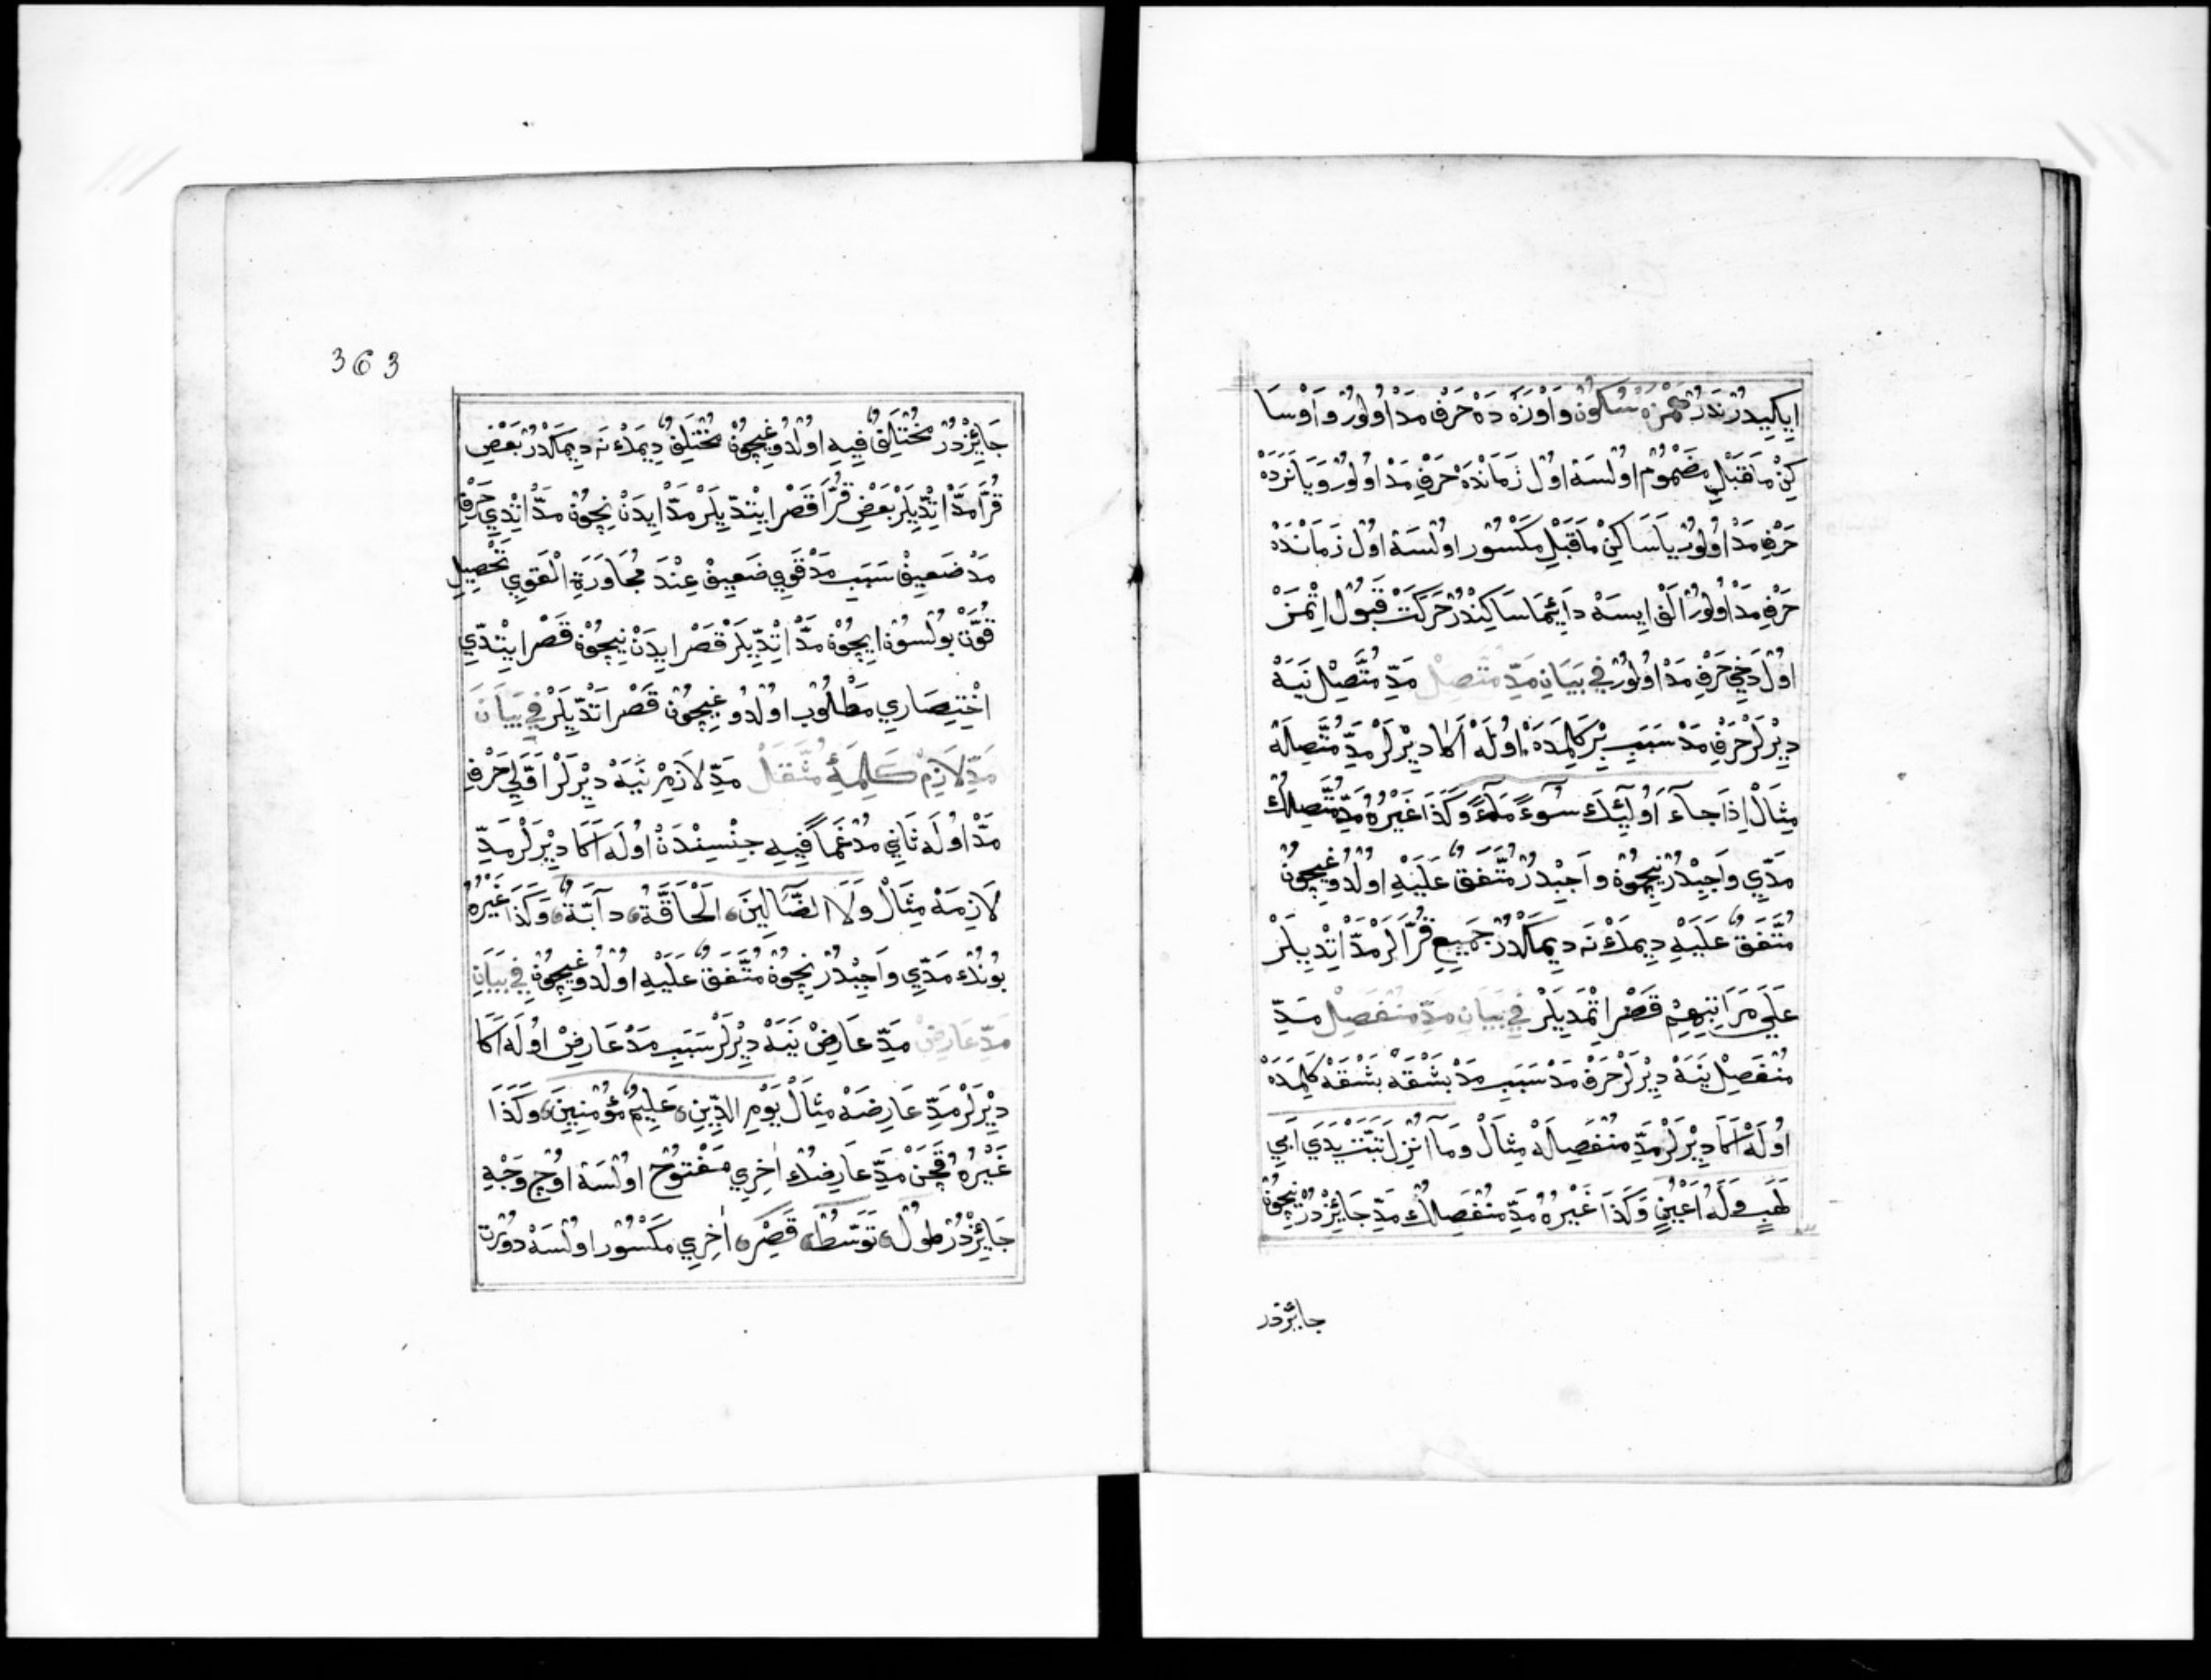 اِيكِيدُرْ نَدُرْ هَمْزَهْ سُكُونْ وَاوْزَهْ دَهْ حَرْفِ مَدْ اُولُورْ وَاوْ سَا
كِنْ مَاقَبْلِ مَضْمُومْ اُولْسَهْ اوُلْ زَمَانْدَهْ حَرْفِ مَدْ اوُلُورْ وَيَانَزَدَهْ
حَرْفِ مَدْ اوُلُورْ يَاسَاكِنْ مَاقَبْلِ مَكْسُورْ اوُلْسَهْ اوُلْ زَمَانْدَهْ
حَرْفِ مَدْ اوُلُورْ اَلِفْ اِيسَهْ دَائِمَا سَاكِنْدُرْ حَرَكَتْ قَبُولْ اِتْمَزْ
اوُلْ دَخِي حَرْفِ مَدْ اوُلُورْ فِي بَيَانِ مَدِّ مُتَّصِلْ مَدِّ مُتَّصِلْ نَيَهْ
دِيْرلَرْ حَرْفِ مَدْ سَبَبِ بِرْ كَلِمَدَهْ اوُلَهْ اَكَا دِيْرلَرْ مَدِّ مُتَّصِلَهْ
مِثَالْ اِذَا جَآءَ اوُلَئِكَ سُوءً مَآءً وَكَذَا غَيْرُهُ مَدِّ مُتَّصِلُكْ
مَدِّي وَاجِبْدُرْ نِيچُونْ وَاجِبْدُرْ مُتَّفَقٌ عَلَيْهِ اوُلْدُوغِيچُونْ
مُتَّفَقٌ عَلَيْهِ دِيمَكْ نَه دِيمَكْدُرْ جَمِيعِ قُرَّالَرْ مَدّْ اِتْدِيلَرْ
عَلَي مَرَاتِبِهِمْ قَصْرْ اِتْمَدِيلَرْ فِي بَيَانِ مَدِّ مُنْفَصِلْ مَدِّ
مُنْفَصِلْ نَيَهْ دِيْرلَرْ حَرْفِ مَدْ سَبَبِ مَدْ بَشْقَهْ بَشْقَهْ كَلِمَدَهْ
اوُلَهْ اَكَا دِيْرلَرْ مَدِّ مُنْفَصِلَهْ مِثَالْ وَمَآ اُنْزِلَ تَبَّتْ يَدَي اَبِي
لَهَبٍ وَلَهُ اَعْيُنٍ وَكَذَا غَيْرُهُ مَدِّ مُنْفَصِلُكْ مَدِّ جَائِزْدُرْ نِيچُونْ
جائزدر
363
جَائِزْدُرْ مُخْتَلِفٌ فِيهِ اوُلْدُوغِيچُونْ مُخْتَلِفٌ دِيمَكْ نَه دِيمَكْدُرْ بَعْضِ
قُرَّا مَدّْ اِتْدِّيلَرْ بَعْضِ قُرَّا قَصْرْ اِيتْدِّيلَرْ مَدّْ اِيدَنْ نِيچُونْ مَدّْ اِتْدِي حَرْفِ
مَدْ ضَعِيفْ سَبَبِ مَدْ قَوِي ضَعِيفْ عِنْدَ مُجَاوَرَةِ الْقَوِي تَحْصِيلِ
قُوَّتْ بُولْسُونْ اِيچُونْ مَدّْ اِتْدِّيلَرْ قَصْرْ اِيدَنْ نِيچُونْ قَصْرْ اِيتْدِّي
اخْتِصَارِي مَطْلُوبْ اوُلْدُوغِيچُونْ قَصْرْ اَتْدِّيلَرْ فِي بَيَانَ
مَدِّ لَازِمْ كَلِمَهٔ مُثَقَّلْ مَدِّ لَازِمْ نَيَهْ دِيْرلَرْ اَوَّلِي حَرْفِ
مَدّْ اوُلَه ثَانِي مُدْغَمًا فِيهِ جِنْسِنْدَنْ اوُلَه اَكَا دِيْرلَرْ مَدِّ
لَازِمَهْ مِثَالْ وَلَا الضَّآلِّينَ، اَلْحَاقَّةُ، دَآبَّةٌ، وَكَذَا غَيْرُهُ
بُونُكْ مَدِّي وَاجِبْدُرْ نِيچُونْ مُتَّفَقٌ عَلَيْهِ اوُلْدُوغِيچُونْ فِي بَيَانِ
مَدِّ عَارِضْ مَدِّ عَارِضْ نَيَهْ دِيْرلَرْ سَبَبِ مَدْ عَارِضْ اوُلَه اَكَا
دِيْرلَرْ مَدِّ عَارِضَهْ مِثَالْ يَوْمِ الدِّينِ، عَلِيمٌ مُؤْمِنِينَ، وَكَذَا
غَيْرُهُ قَچَنْ مَدِّ عَارِضُكْ اٰخِرِي مَفْتُوحْ اوُلْسَهْ اوُچْ وَجْهِ
جَائِزْدُرْ طُولْ، تَوَسُّطْ، قَصْرْ، اٰخِرِي مَكْسُورْ اوُلْسَهْ دُورْتْ